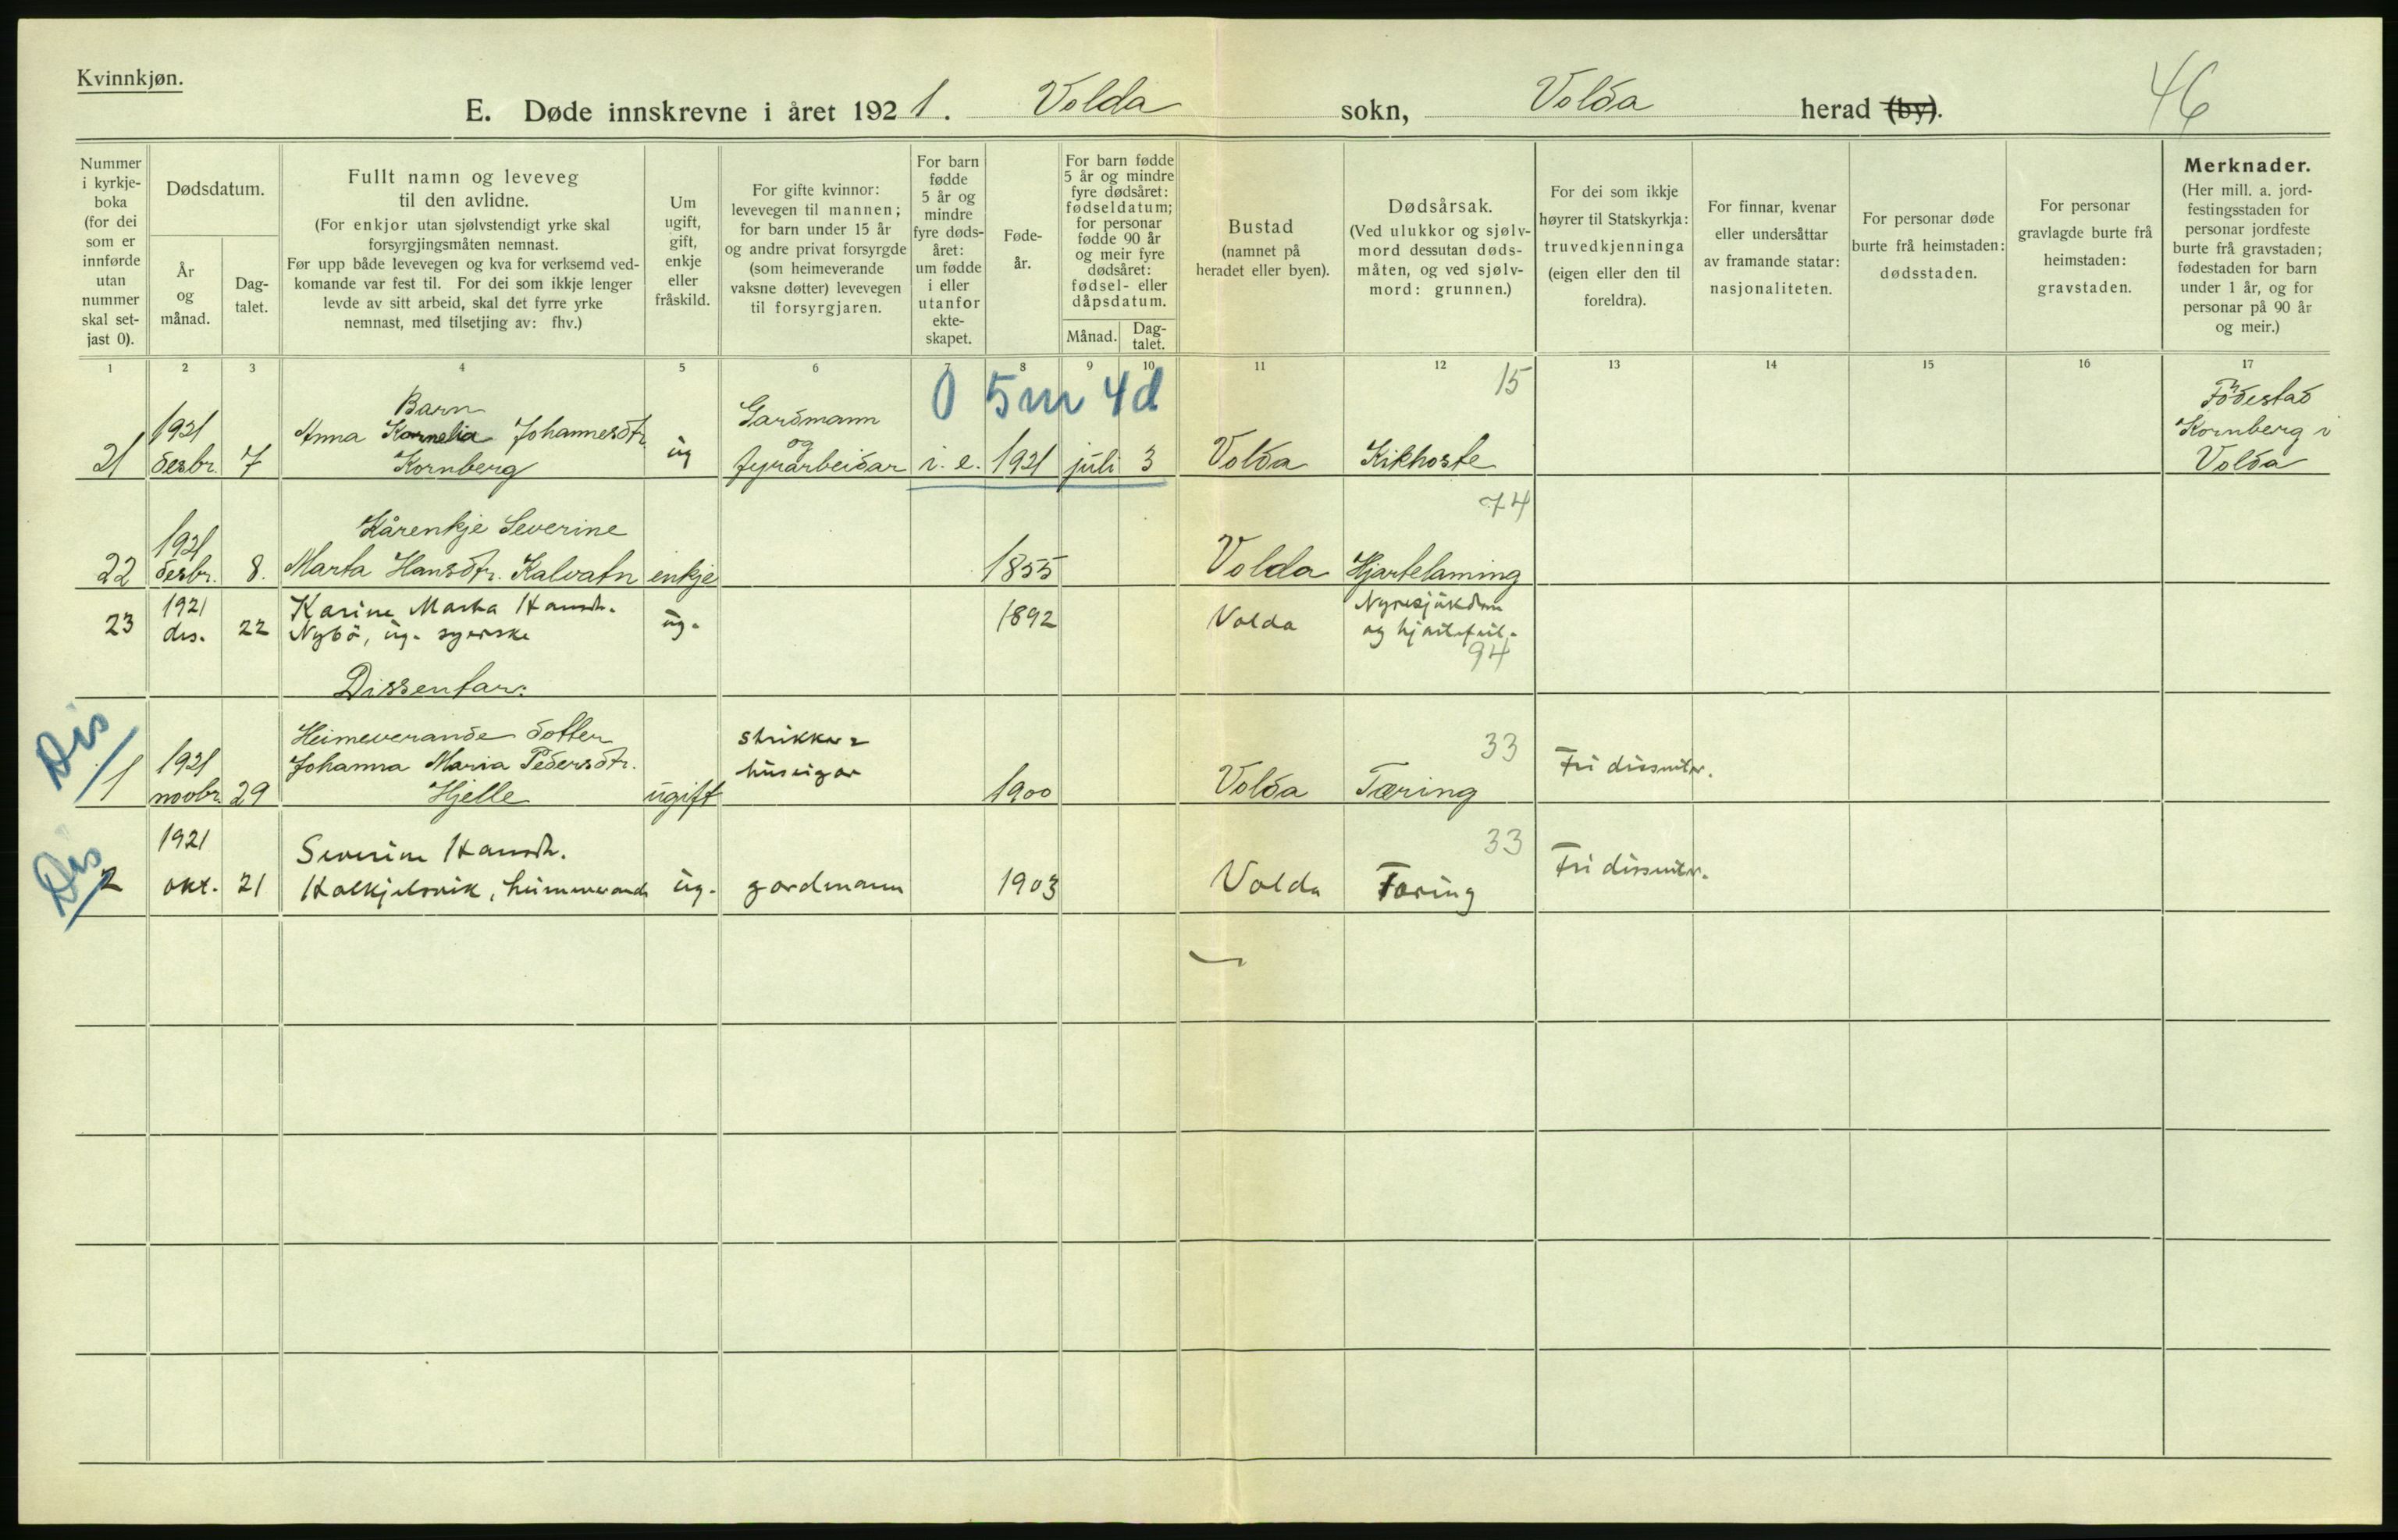 Kvinnkjøn.
46
E. Døde innskrevne i året 1921. Volda sokn, Volda herad (by).
Nummer
i kyrkje-
boka
(for dei
som er
innførde
utan
nummer
skal set-
jast 0).
Dødsdatum.
År
og
månad.
Dag-
talet.
Fullt namn og leveveg
til den avlidne.
(For enkjor utan sjølvstendigt yrke skal
forsyrgjingsmåten nemnast.
Før upp både levevegen og kva for verksemd ved-
komande var fest til. For dei som ikkje lenger
levde av sitt arbeid, skal det fyrre yrke
nemnast, med tilsetjing av: fhv.)
Um
ugift,
gift,
enkje
eller
fråskild.
For gifte kvinnor:
levevegen til mannen;
for barn under 15 år
og andre privat forsyrgde
(som heimeverande
vaksne døtter) levevegen
til forsyrgjaren.
For barn
fødde
5 år og
mindre
fyre døds-
året:
um fødde
i eller
utanfor
ekte-
skapet.
Føde-
år.
For barn fødde
5 år og mindre
fyre dødsåret:
fødseldatum;
for personar
fødde 90 år
og meir fyre
dødsåret:
fødsel- eller
dåpsdatum.
Månad.
Dag-
talet.
Bustad
(namnet på
heradet eller byen).
Dødsårsak.
(Ved ulukkor og sjølv-
mord dessutan døds-
måten, og ved sjølv-
mord: grunnen.)
For dei som ikkje
høyrer til Statskyrkja:
truvedkjenninga
(eigen eller den til
foreldra).
For finnar, kvenar
eller undersåttar
av framande statar:
nasjonaliteten.
For personar døde
burte frå heimstaden:
dødsstaden.
For personar
gravlagde burte frå
heimstaden:
gravstaden.
Merknader.
(Her mill. a. jord-
festingsstaden for
personar jordfeste
burte frå gravstaden;
fødestaden for barn
under 1 år, og for
personar på 90 år
og meir.)
1 2 3 4 5 6 7 8 9 10 11 12 13 14 15 16 17
0 5m 4d
15
Barn
Gardmann
Födestad
1921
Anna Kornelia Johannesdtr.
og
Kornberg i
21 desbr. 7 Kornberg ug fyrarbeidar i. e. 1921 juli 3 Volda Kikhoste Volda
74
Kårenkje Severine
1921
22 desbr. 8. Marta Hansdtr. Kalvatn enkje 1855 Volda Hjartelaming
1921 Karine Marta Hansdtr. Nyresjukdom
23 des. 22 Nybö, ug. syerske ug. 1892 Volda og hjartefeil.
94
Dissentar:
Dis
Heimeverande dotter strikkar- 33
1921 Johanna Maria Pedersdtr. huseigar Fri dissenter.
1 novbr. 29 Hjelle ugift 1900 Volda Tæring
Dis
1921 Severine Hansdtr. 33 Fri dissenter.
2 okt. 21 Halkjelsvik, heimeverande ug. gardmann 1903 Volda Tæring